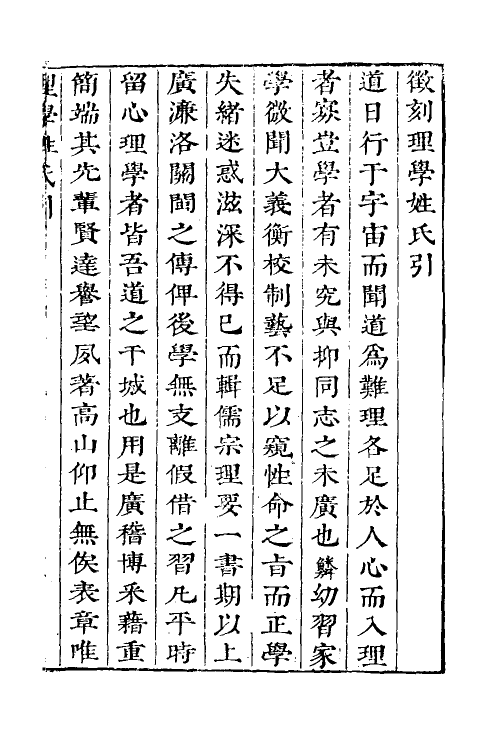 徵刻理學姓氏引
道日行于宇宙而聞道爲難理各足於人心而入理
者寡豈學者有未究與抑同志之未廣也鱗幼習家
學微聞大義衡校制藝不足以窺性命之旨而正學
失緒迷惑滋深不得已而輯儒宗理要一書期以上
廣濂洛關閩之傳俾後學無支離假借之習凡平時
留心理學者皆吾道之干城也用是廣稽博采藉重
簡端其先輩賢達譽望夙著高山仰止無俟表章唯
理學姓氏引